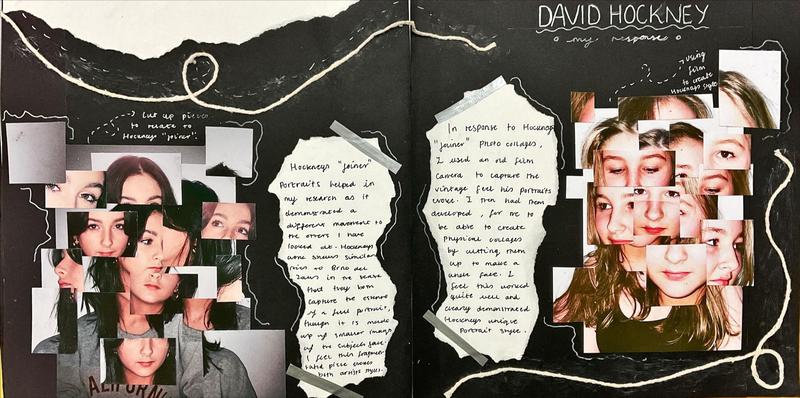 DAVID HOCKNEY
my response
using
film
to create
Hockneys style
Cut up pieces
to relate to
Hockneys "joiner"
Hockneys "joiner"
Portraits helped in
my research as it
demonstrated a
different movement to
the others I have
looked at. Hockneys
work shows similar
to Brno del
in the sense
that they both
capture the essence
of a full portrait,
though it is made
up of smaller images
of the subjects face.
I feel this
piece
both artists styles.
In response to Hockneys
"joiner" photo collages,
I used an old film
camera to capture the
vintage feel his portraits
evoke. I then had them
developed, for me to
be able to create
physical collages
by cutting them
up to make a
whole face. I
feel this worked
quite well and
clearly demonstrated
Hockneys unique
Portrait style.
ALIFORN